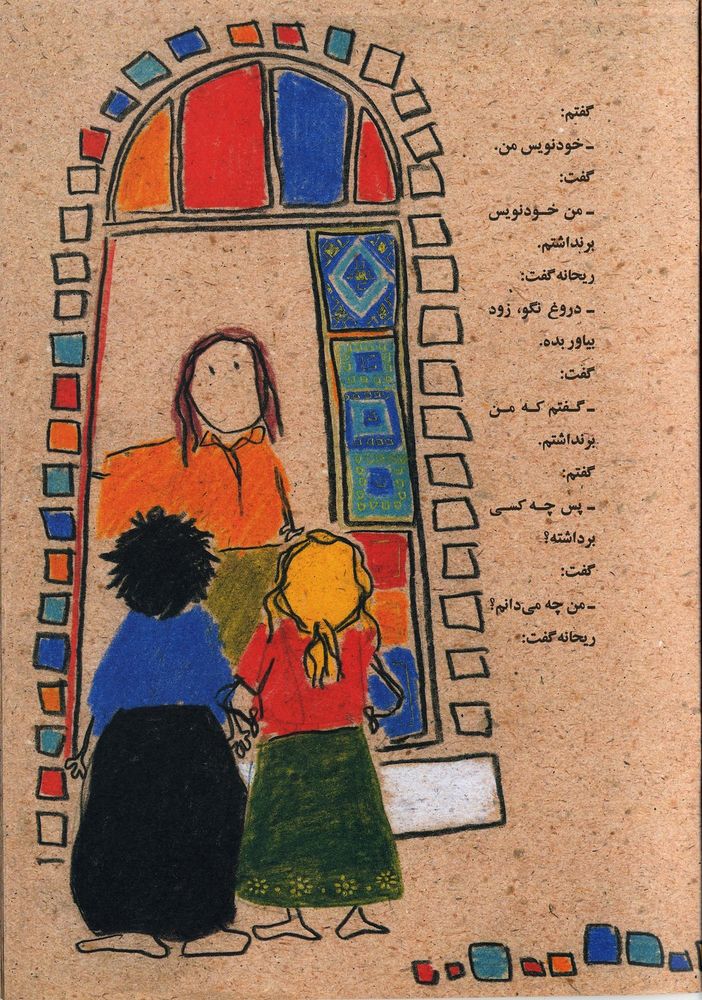 گفتم:
ـ خودنویس من.
گفت:
ـ من خـودنویس
برنداشتم.
ریحانه گفت:
ـ دروغ نگو، زود
بیاور بده.
گفت:
ـ گـفتم کـه مـن
برنداشتم.
گفتم:
ـ پس چـه کسـی
برداشته؟
گفت:
ـ من چه می‌دانم؟
ریحانه گفت: